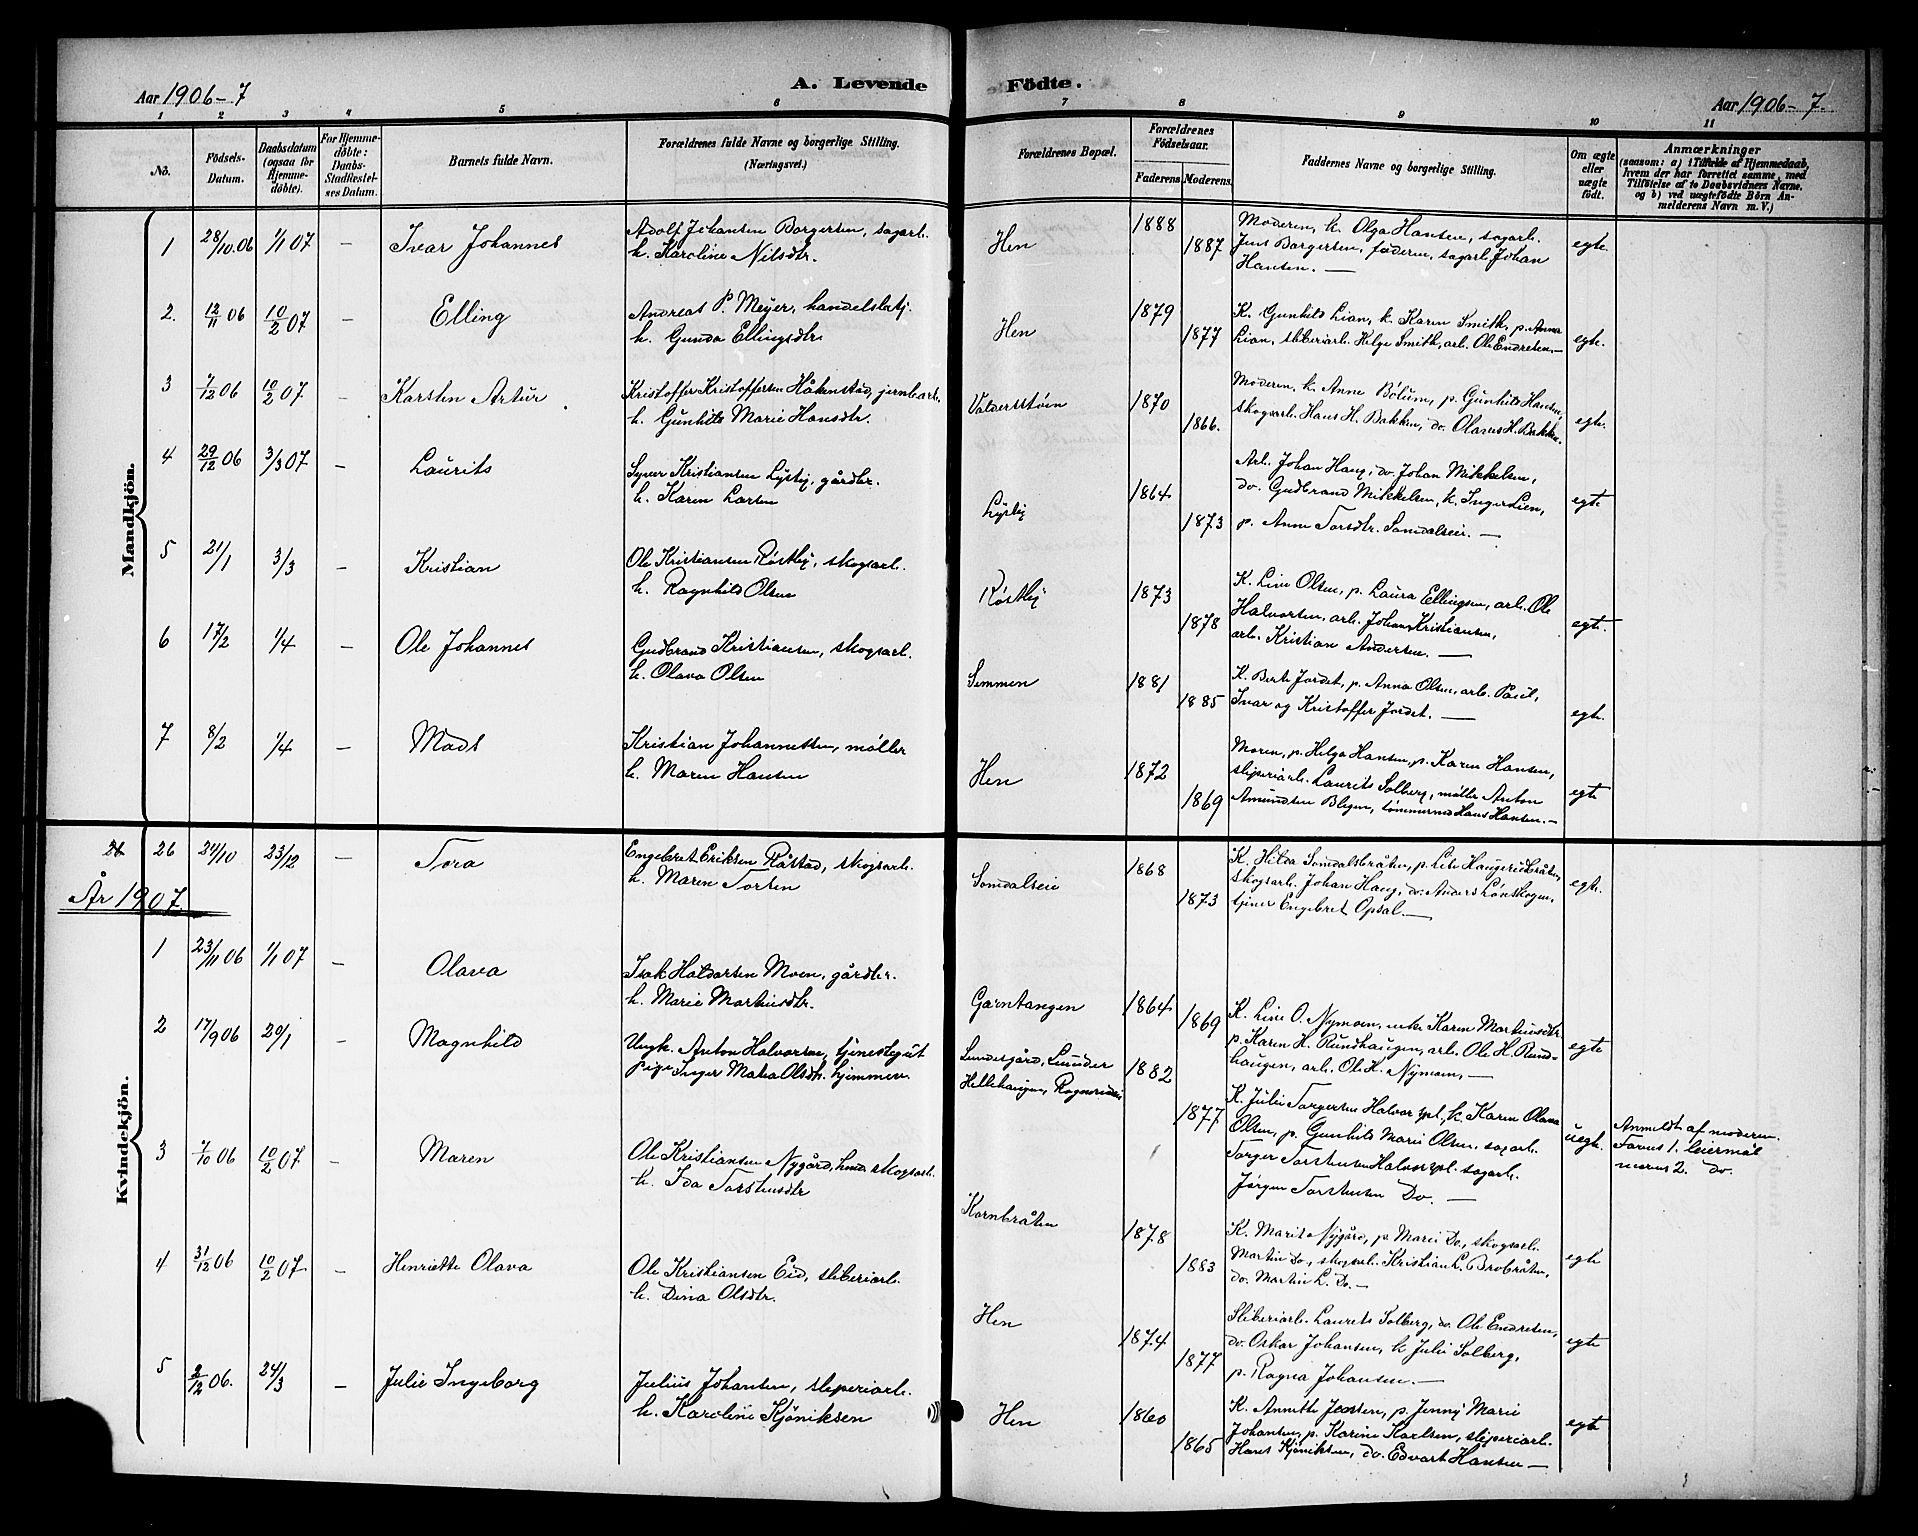 Aar 1906-7
A. Levende
Födte.
Aar 1906-7.
1 2 3 4 5 6 7 8 9 10 11
No.
Födsels-Datum.
Daabsdatum (ogsaa for Hjemmedöbte).
For Hjemmedöbte: Daabs-Stadfæstelses Datum.
Barnets fulde Navn.
Forældrenes fulde Navne og borgerlige Stilling. (Næringsvei.)
Forældrenes Bopæl.
Forældrenes Födselsaar.
Faderens. Moderens.
Faddernes Navne og borgerlige Stilling.
Om ægte eller uægte födt.
Anmærkninger
(saasom: a) i Tilfælde af Hjemmedaab, hvem der har forrettet samme, med Tilföielse af to Daabsvidners Navne, og b) ved uægtefödte Börn Anmelderens Navn m. V.)
Mandkjön.
1 28/10 06 1/1 07 – Ivar Johannes
Adolf Johansen Borgersen, sagarb.
h. Karoline Nilsdtr.
Hen 1888 1887
Moderen, k. Olga Hansen, sagarb.
Jens Borgersen, faderen, sagarb. Johan
Hansen. –
egte.
2. 12/11 06 10/2 07 – Elling
Andreas P. Meyer, handelsbetj.
h. Gunda Ellingsdtr.
Hen 1879 1877
K. Gunhild Lian, k. Karen Smith, p. Anna
Lian, sliberiarb. Helge Smith, arb. Ole Endresen. –
egte.
3 7/12 06 10/2 07 – Karsten Artur
Kristoffer Kristoffersen Håkenstad, jernbarb.
h. Gunhild Marie Hansdtr.
Valdersstøen 1870 1866.
Moderen, k. Anne Bölum, p. Gunhild Hansen,
skogsarb. Hans H. Bakken, do. Olaus H. Bakken.
egte.
4 29/12 06 3/3 07 – Laurits
Syver Kristiansen Lysby, gårdbr.
h. Karen Larsen
Lysby 1864 1873
Arb. Johan Haug, do. Johan Mikkelsen,
do. Gudbrand Mikkelsen, k. Inger Lien,
p. Anne Torsdtr. Somdalseie. –
egte
5 21/1 3/3 – Kristian
Ole Kristiansen Röstby, skogsarb.
h. Ragnhild Olsen
Röstby 1873 1878
K. Live Olsen, p. Laura Ellingsen, arb. Ole
Halvorsen, arb. Johan Kristiansen,
arb. Kristian Andersen. –
egte.
6 17/2 1/4 – Ole Johannes
Gudbrand Kristiansen, skogsarb.
h. Olava Olsen
Semmen 1881 1885
K. Berte Jordet, p. Anna Olsen, arb. Paul,
Ivar og Kristoffer Jordet. –
egte.
7 8/2 1/4 – Mads
Kristian Johannessen, møller
h. Maren Hansen
Hen 1872 1869
Moren, p. Helga Hansen, p. Karen Hansen,
sliperiarb. Laurits Solberg, møller Anton
Amundsen Blegen, tømmermd Hans Hansen. –
egte
26 24/10 23/12 – Tora
Engebret Eriksen Råstad, skogsarb.
h. Maren Torsen
Somdalseie 1868 1873
K. Hilda Somdalsbråten, p. Lise Haugeriebråten,
skogsarb. Johan Haug, do. Anders Lönskogen,
tjener Engebret Opsal. –
egte.
År 1907
Kvindekjön.
1 23/11 06 1/1 07 – Olava
Isak Halvorsen Moen, gårdbr.
h. Marie Martinsdtr.
Garntangen 1864 1869
K. Live O. Nymoen, enke Karen Martinusdtr.
p. Karen H. Rundhaugen, arb. Ole H. Rund-
haugen, arb. Ole K. Nymoen. –
egte
2 17/9 06 20/1 – Magnhild
Ungk. Anton Halvorsen, tjenestegut
pige Inger Matea Olsdtr. hjemmev.
Lundesgård, Lunder
Hellehaugen, 1882 1877
K. Julie Torgersen Halvorspl., k. Karen Olava
Olsen, p. Gunhild Marie Olsen, sagarb.
Torger Torstensen Halvorspl. sagarb.
Jørgen Torstensen Do. –
uegte.
Anmeldt af moderen.
Farens 1. leiermål
morens 2. do.
3 7/10 06 10/2 07. – Maren
Ole Kristiansen Nygård, skogsarb.
h. Ida Torstensdtr
Kornbråten 1878 1883
K. Marit Nygård, p. Marie Do., skogsarb.
Martin Do., skogsarb. Kristian L. Brobråten,
do. Martin L. Do. –
egte
4 31/12 06 10/2 07. – Henriette Olava
Ole Kristiansen Eid, sliberiarb.
h. Dina Olsdtr.
Hen 1874 1877
Sliberiarb. Laurits Solberg, do. Ole Endresen,
do. Oskar Johansen, k. Julie Solberg,
p. Ragna Johansen. –
egte
5 2/12 06. 24/3 – Julie Ingeborg
Julius Johansen, sliperiarb.
h. Karoline Kjöniksen
Hen 1860 1865
K. Annette Jensen, p. Jenny Marie
Johansen, p. Karine Karlsen, sliperiarb.
Hans Kjöniksen, do. Edvart Hansen –
egte